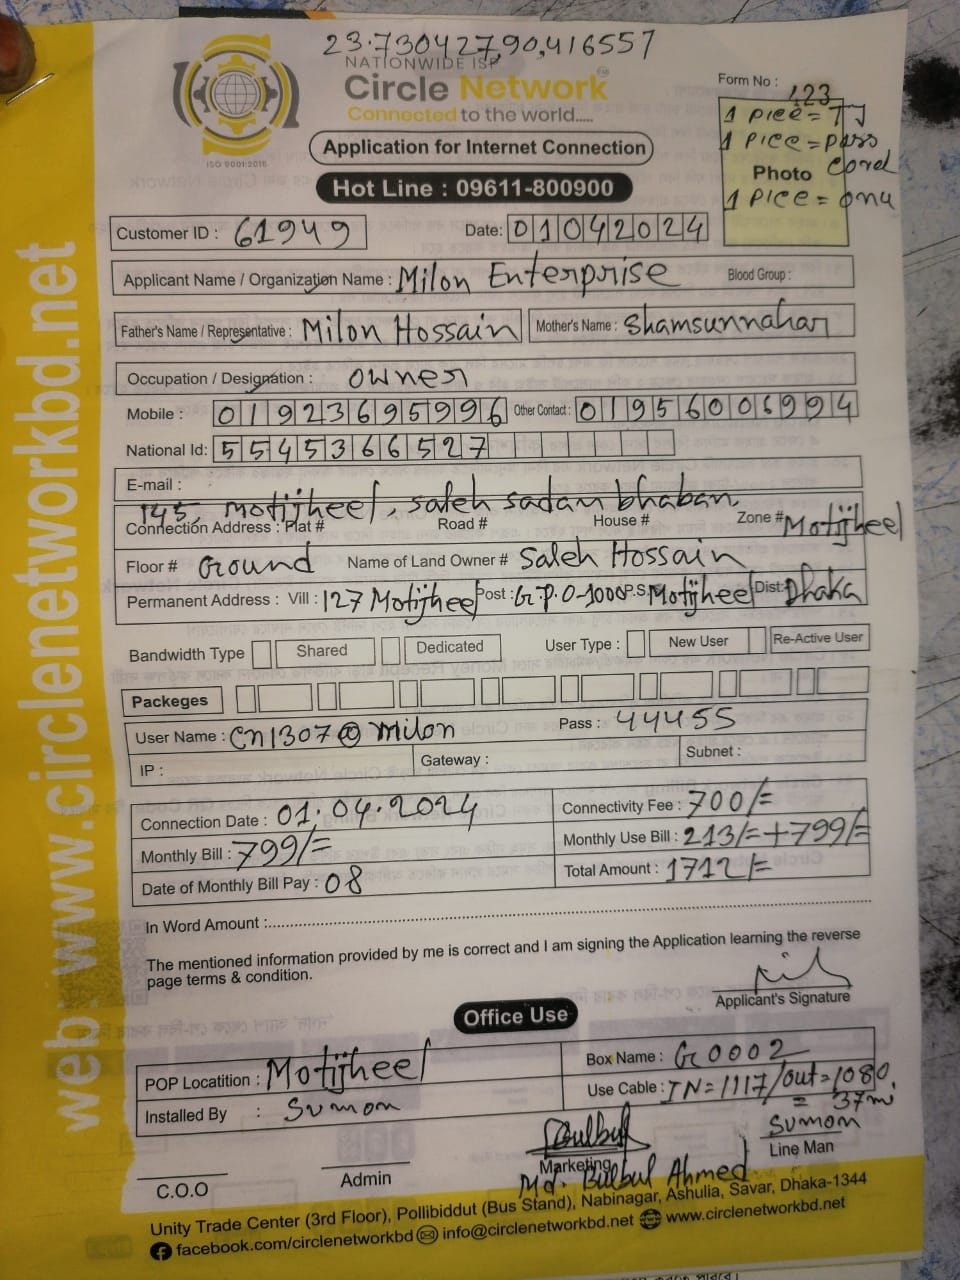 23.730427,90,416557
NATIONWIDE ISP
Circle Network
Connected to the world.....
ISO 9001:2015
Form No : 123
Application for Internet Connection
Hot Line : 09611-800900
1 piece = TJ
1 pice = pass cord
Photo
1 pice = onu
Customer ID : 61949
Date: 01042024
Applicant Name / Organization Name : Milon Enterprise Blood Group :
Father's Name / Representative : Milon Hossain Mother's Name : Shamsunnahar
Occupation / Designation : owner
Mobile : 01923695996 Other Contact : 01956006994
National Id: 5545366527
E-mail :
145, motijheel, saleh sadan bhaban
Connection Address : Plat # Road # House # Zone # Motijheel
Floor # Ground Name of Land Owner # Saleh Hossain
Permanent Address : Vill : 127 Motijheel Post : G.P.O-1000 P.S. Motijheel Dist: Dhaka
Bandwidth Type Shared Dedicated User Type : New User Re-Active User
Packeges
User Name : Cn1307@milon Pass : 44455
IP : Gateway : Subnet :
Connection Date : 01.04.2024 Connectivity Fee : 700/=
Monthly Bill : 799/= Monthly Use Bill : 213/=+799/=
Date of Monthly Bill Pay : 08 Total Amount : 1712/=
In Word Amount :
The mentioned information provided by me is correct and I am signing the Application learning the reverse
page terms & condition.
Applicant's Signature
Office Use
POP Locatition : Motijheel Box Name : G0002
Installed By : Sumon Use Cable : IN=1117/out=1080
= 37m
Bulbul
Sumon
C.O.O Admin Marketing Line Man
Md. Bulbul Ahmed
Unity Trade Center (3rd Floor), Pollibiddut (Bus Stand), Nabinagar, Ashulia, Savar, Dhaka-1344
facebook.com/circlenetworkbd info@circlenetworkbd.net www.circlenetworkbd.net
web: www.circlenetworkbd.net